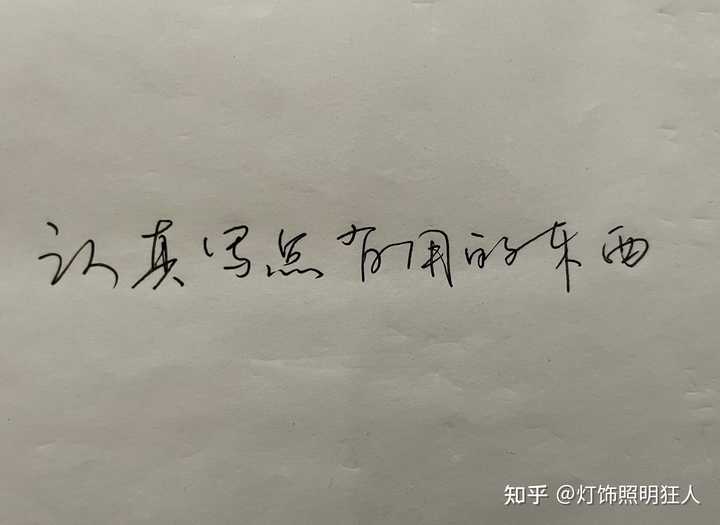 认真写点有用的东西
知乎 @灯饰照明狂人